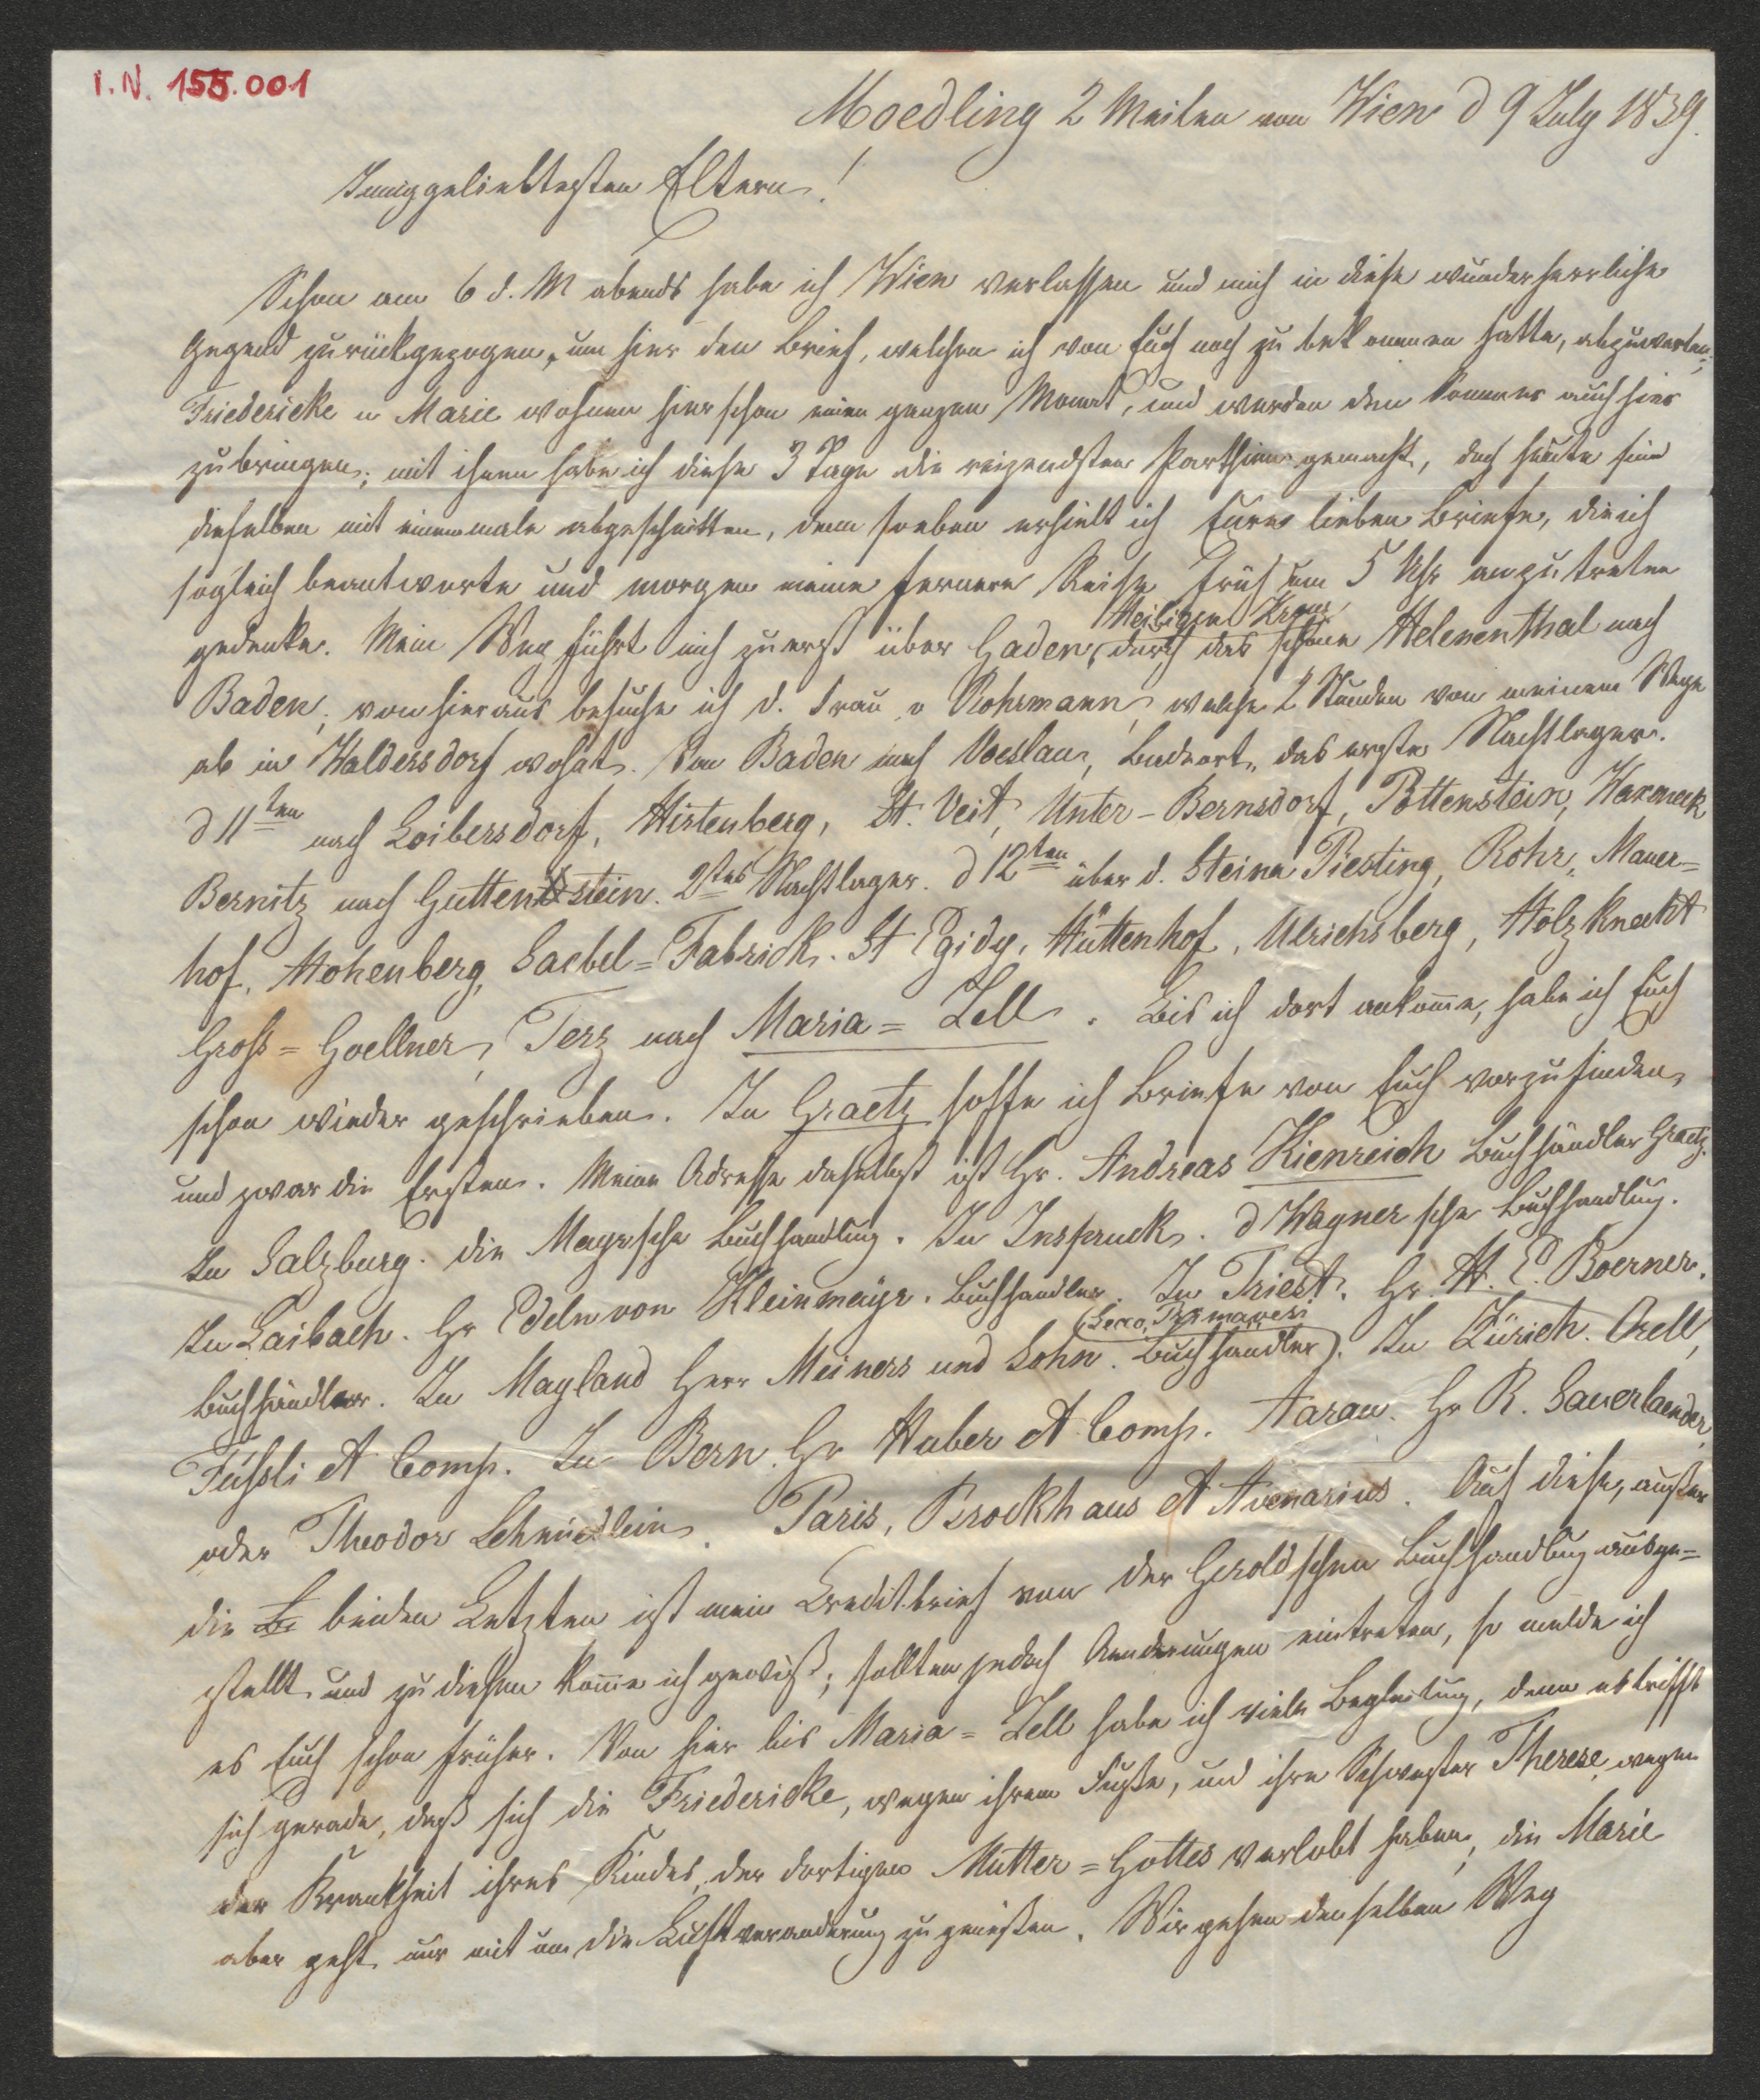 I.N. 155.001
Moedling 2 Meilen von Wien d 9 July 1839.
Inniggeliebtesten Eltern!
Schon am 6 d. M abends habe ich Wien verlassen und mich in diese wunderherrliche
Gegend zurückgezogen, um hier den Brief, welchen ich von Euch noch zu bekommen hatte, abzuwarten;
Friedericke u Marie wohnen hier schon einen ganzen Monat, und werden den Sommer auch hier
zubringen; mit ihnen habe ich diese 3 Tage die reizendsten Parthien gemacht, doch heute sind
dieselben mit einemmale abgeschnitten, denn soeben erhielt ich Eure lieben Briefe, die ich
sogleich beantworte und morgen meine fernere Reise früh um 5 Uhr anzutreten
Heiligen Kreuz
gedenke. Mein Weg führt mich zuerst über Gaden, durch das schöne Helenenthal nach
Baden, von hieraus besuche ich d. Frau v Rohrmann, welche 2 Stunden von meinem Wege
ab in Waldersdorf wohnt. Von Baden nach Voeslau, Badeort, das erste Nachtlager.
d 11ten nach Loibersdorf, Hirtenberg, St. Veit, Unter-Bernsdorf, Pottenstein,
Bernitz nach Guttenstein. 2tes Nachtlager. d 12ten über d. Steina Piesting, Rohr, Mauer=
hof, Hohenberg, Saebel=Fabrick. St Egidy, Hüttenhof, Ulrichsberg, Holzknecht
Gross=Goellner, Terz nach Maria=Zell. Bis ich dort ankome, habe ich Euch
schon wieder geschrieben. In Graetz hoffe ich Briefe von Euch vorzufinden,
und zwar die Ersten. Meine Adresse daselbst ist Hr. Andreas Kienreich Buchhändler Graetz.
In Salzburg. die Mayrsche Buchhandlung. In Inspruck. d Wagnersche Buchhandlung.
In Laibach. Hr Edeln von Kleinmayr. Buchhandler. In Triest. Hr. H. E. Boerner.
Buchhändler. In Mayland Herr Meiners und Sohn. Buchhändler). In Zürich. Orell,
Füssli et Comp. In Bern. Hr Huber et Comp. Aarau. Hr R. Sauerlaender
oder Theodor Schmidlein. Paris, Brockhaus et Avenarius. Auf diese, außer
die beiden Letzten ist mein Creditbrief von der Geroldschen Buchhandlung ausge=
stellt und zu diesen kome ich gewiß; sollten jedoch Aenderungen eintreten, so melde ich
es Euch schon früher. Von hier bis Maria=Zell habe ich viele Begleitung, denn es trifft
sich gerade, daß sich die Friedericke, wegen ihrem Fuße, und ihre Schwester Therese, wegen
der Krankheit ihres Kindes, der dortigen Mutter=Gottes verlobt haben, die Marie
aber geht nur mit um die Luftveranderung zu genießen. Wir gehen denselben Weg